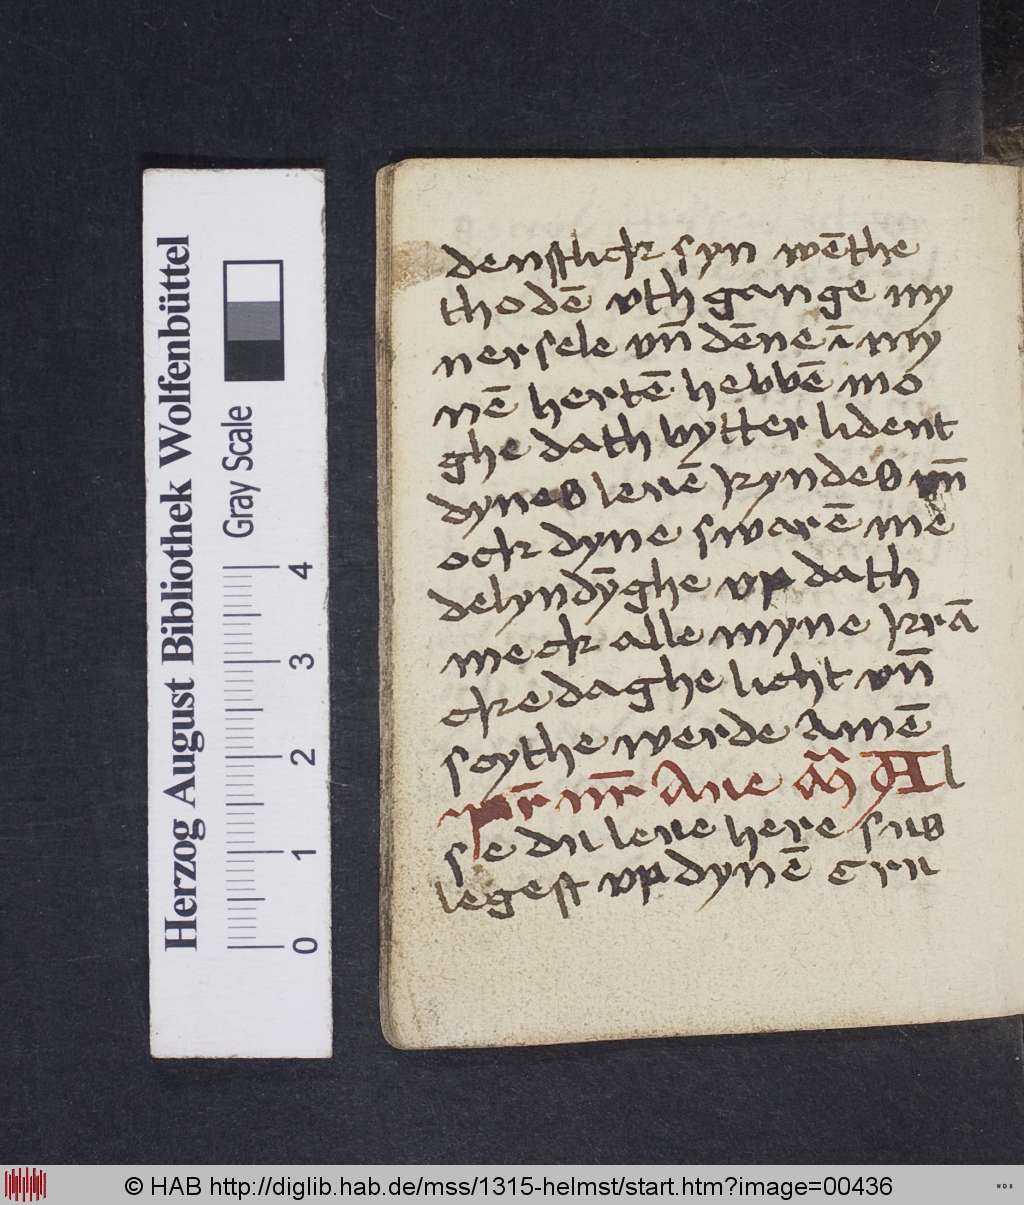 Herzog August Bibliothek Wolfenbüttel
Gray Scale
0 1 2 3 4
denstlick syn wēthe
thodē vth gange my
ner sele vn̄ dēne ī my
nē hertē hebbē mo
ghe dath bytter lident
dynes leuē kyndes vn̄
ock dyne swarē me
delyndȳghe vp dath
meck alle myne krā
cke daghe licht vn̄
soythe werde Amē
pr̄ nr̄ Aue Al
se du leue here sus
legest vp dynē cru
© HAB http://diglib.hab.de/mss/1315-helmst/start.htm?image=00436